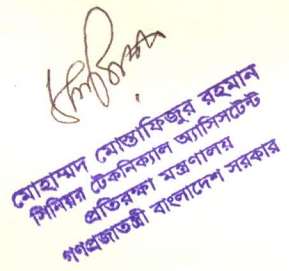 মোহাম্মদ মোস্তাফিজুর রহমান
সিনিয়র টেকনিক্যাল অ্যাসিসটেন্ট
প্রতিরক্ষা মন্ত্রণালয়
গণপ্রজাতন্ত্রী বাংলাদেশ সরকার